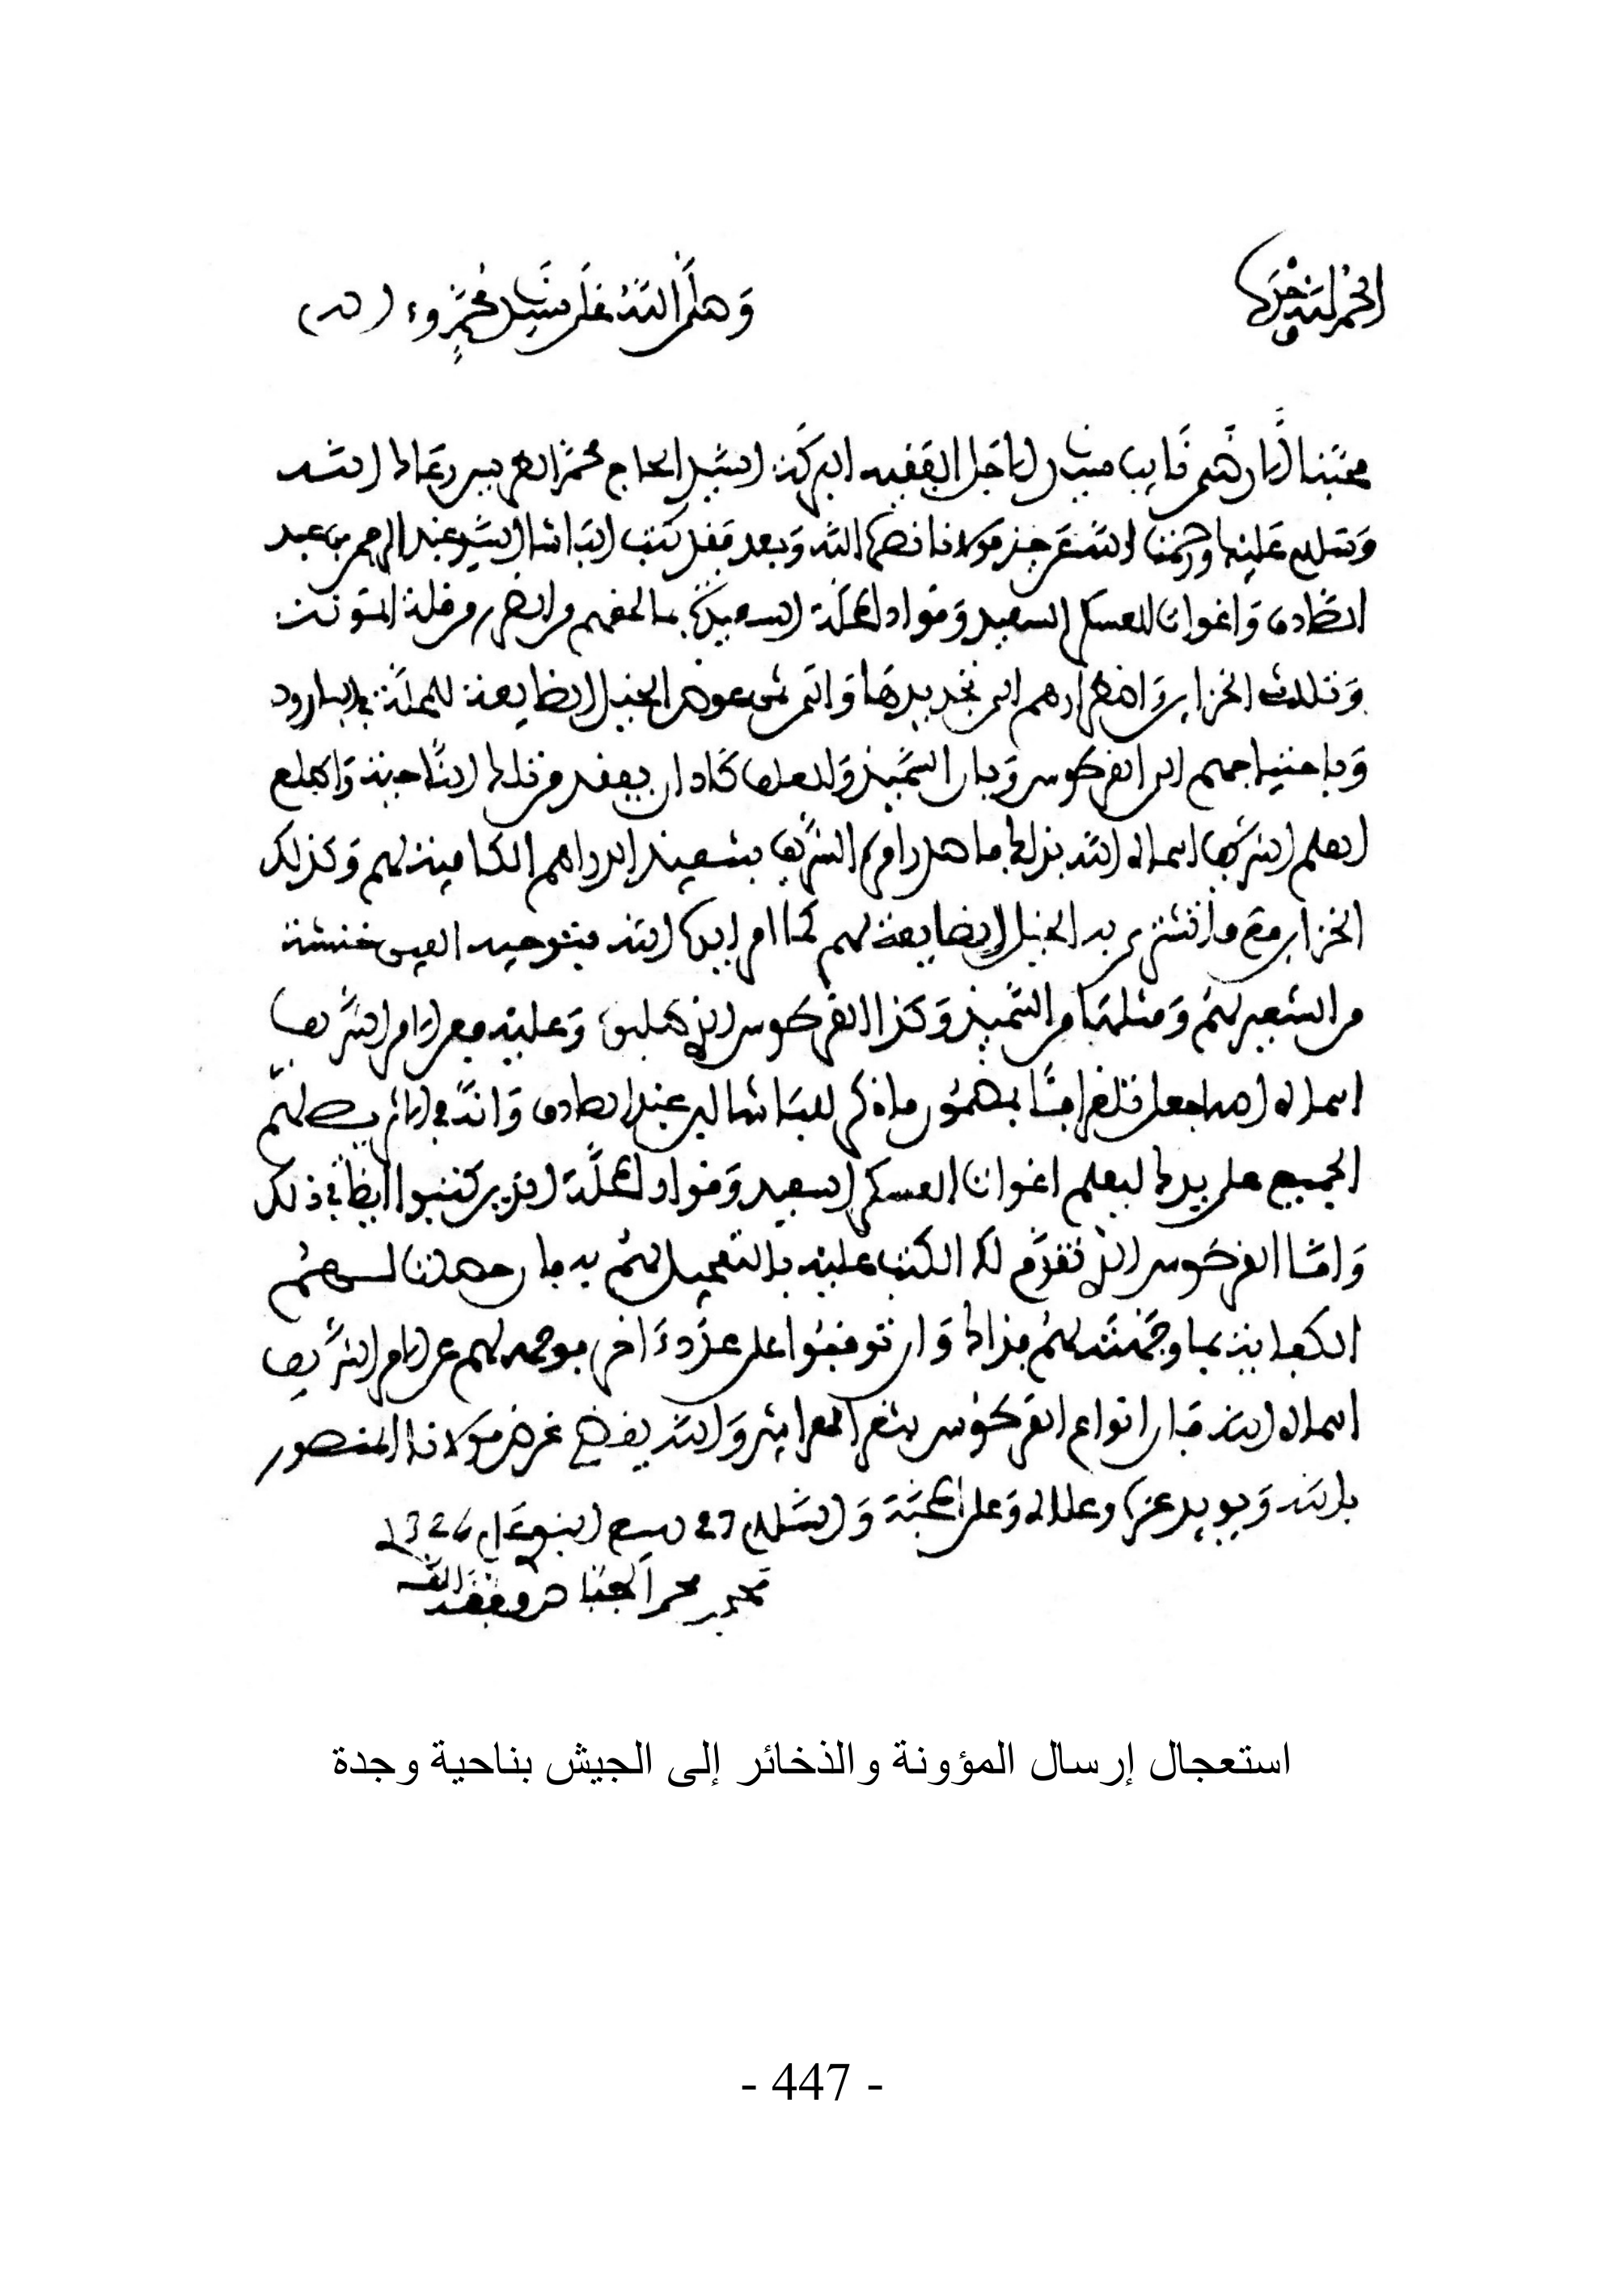 الحمد لله وحده
وصلى الله على سيدنا محمد وءاله
محبنا الارضى نايب سيدنا الاجل الفقيه البركة السيد الحاج محمد العربي رعاك الله
وسلام عليك ورحمت الله عن خير مولانا نصره الله وبعد فقد كتب الباشا السيد عبد الرحمن بن عبد
الصادق واعوان العسكر السعيد وقواد المحلة السعيدة بما لحقهم من الضرر من قلة المئونت
وتلاشت الخزاين واضطرارهم الى تجديدها والى شرى عوض الخيل الضايعة للمحلة في البارود
وباحتياجهم الى القرطوس وبان التبن والعلف كاد ان يفقد من تلك الناحية واطلع
العلم الشريف اسماه الله بذلك فاصدر امره الشريف بتنفيذ الدراهم الكافية لهم وكذلك
الخزاين مع ما تشترى به الخيل الضايعة لهم كما امر ايده الله بتوجيه الفي خنشة
من الشعير لهم ومثلها من التبن وكذا القرطوس الذي طلبوه وعليه فعن الامر الشريف
اسماه الله اجعل تلغرافا بمضمن ما ذكر للباشا ابن عبد الصادق وانه في الاثر يصلهم
الجميع على يدك ليعلم اعوان العسكر السعيد وقواد المحلة الذين كتبوا ايضا في ذلك
واما القرطوس الذي تقدم لك الكتب عليه بالتعجيل لهم به فان حصلت لهم
الكفاية بما وجهته لهم فذاك وان توقفوا على عدد ءاخر فوجهه لهم عن الامر الشريف
اسماه الله فان انواع القرطوس بثغر العرايش والله يقضي غرض مولانا المنصور
بالله ويويد عزه وعلاه وعلى المحبة والسلام 27 ربيع النبوي عام 1324
محمد بن محمد الجباص وفقه الله
استعجال إرسال المؤونة والذخائر إلى الجيش بناحية وجدة
- 447 -